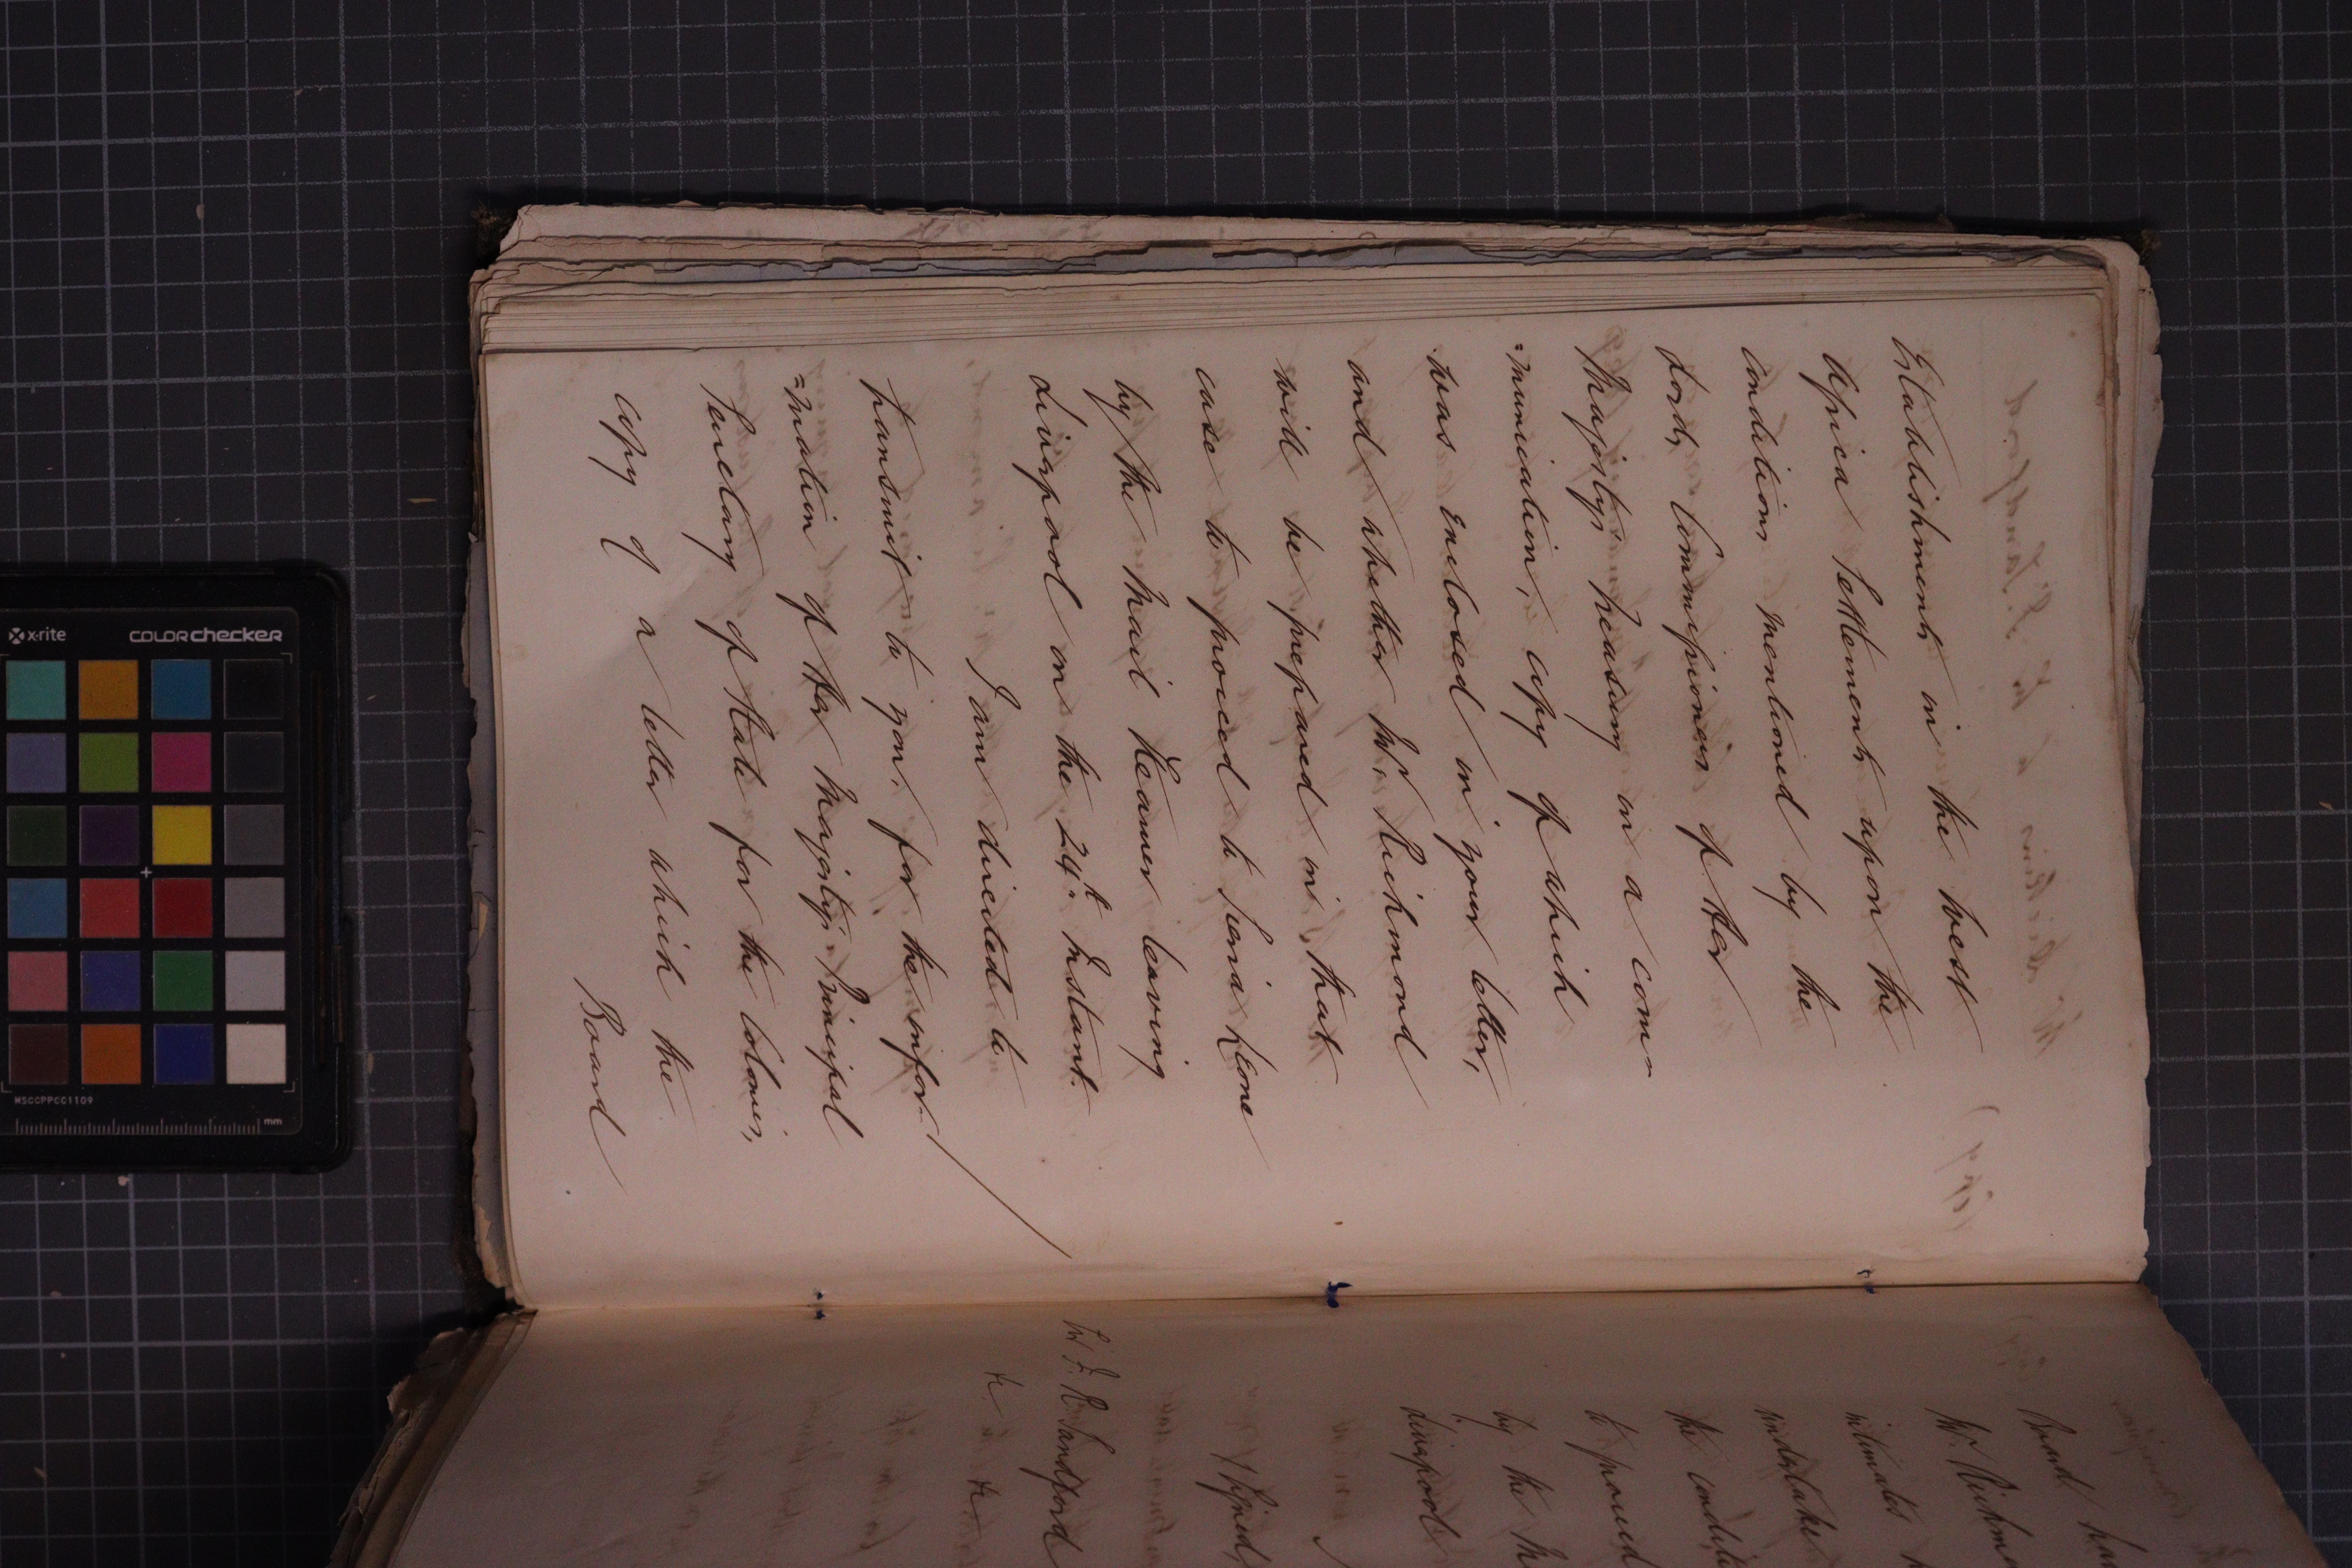 Establishments in the West
African Settlements upon the
conditions mentioned by the
Lords Commissioners of Her
Majesty's Treasury in a com=
=munication, copy of which
was enclosed in your letter,
and whether Mr. Richmond
will be prepared in that
case to proceed to Sierra Leone
by the Mail Steamer leaving
Liverpool on the 24th Instant.
I am directed to
transmit to you, for the infor-
=mation of Her Majesty's Principal
Secretary of State for the Colonies,
copy of a letter which the
Board
Board ha
Mr. Richmo
intimates h
undertake
the conditi
to proceed
by the M
Liverpool
Signed,
W. F. R. Sandford
&c &c &c
x-rite
COLORchecker
MSCCPPCC1109
mm